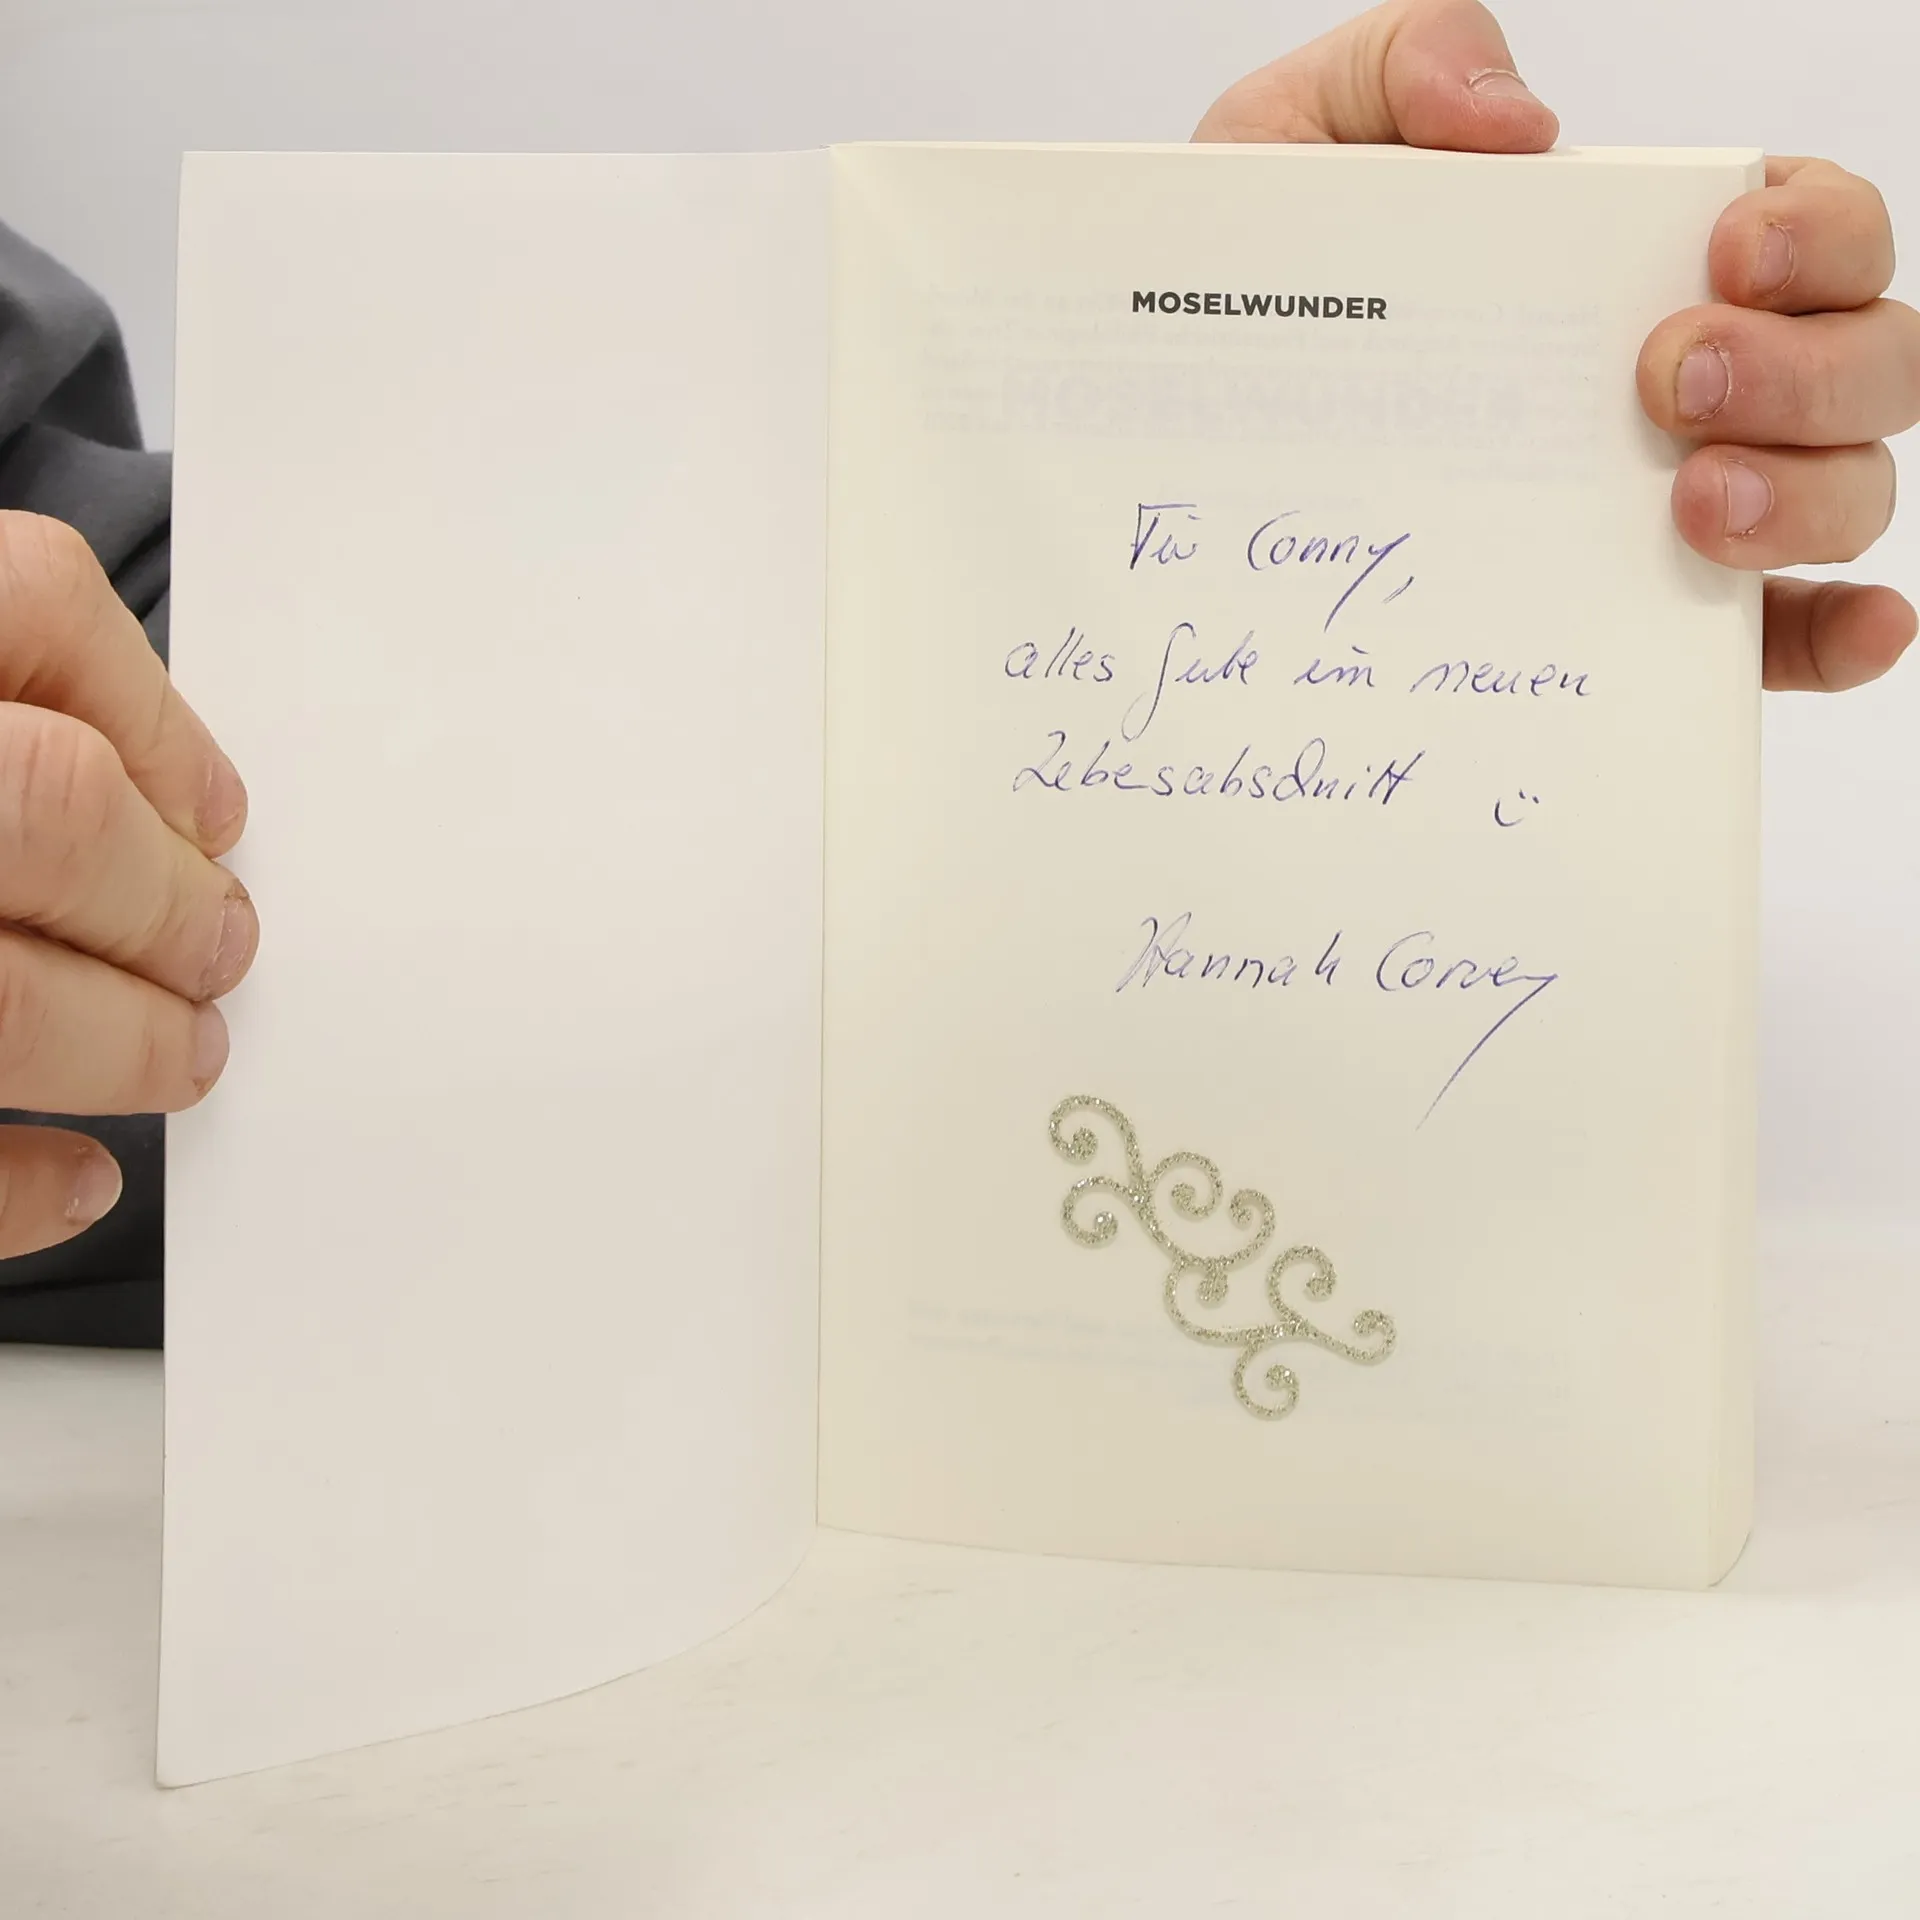 MOSELWUNDER
Für Conny,
alles Gute im neuen
Lebesabschnitt :)
Hannah Corvey